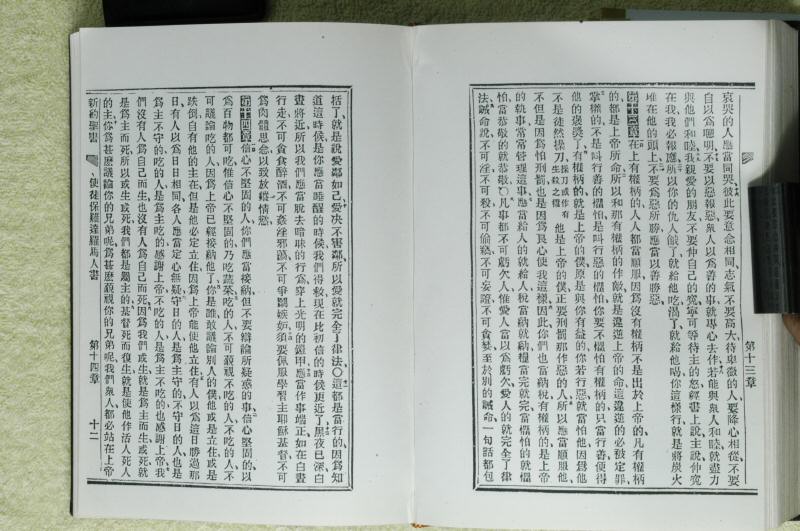 哀哭的人應當同哭彼此要意念相同志氣不要高大待卑微的人要降心相從不要
自以為聰明不要以惡報惡衆人以為善的事就專心去作若能與衆人和睦就盡力
與他們和睦我親愛的朋友不要伸自己的寃寧可等待主的怒經書上說主說伸寃
在我我必報應所以你的仇人餓了就給他吃渴了就給他喝你這樣行就是將炭火
堆在他的頭上不要為惡所勝應當以善勝惡
第十三章在上有權柄的人人都當順服因為沒有權柄不是出於上帝的凡有權柄
的都是上帝所命所以和那有權柄的作敵就是違逆上帝的命這違逆的必被定罪
掌權的不是叫行善的懼怕是叫行惡的懼怕你要不懼怕有權柄的只當行善便得
他的褒獎了有權柄的就是上帝的僕原是與你有益的你若行惡就當怕他因爲他
不是徒然操刀操刀或作有生殺之權他是上帝的僕正要刑罰那作惡的人所以應當順服他
不但是因為怕刑罰也是因為良心使我這樣因此你們也當納稅有權柄的是上帝
的執事常常管理這事應當給人的就給人稅當納就納糧當完就完當懼怕的就懼
怕當恭敬的就恭敬〇凡事都不可虧欠人惟愛人當以為虧欠愛人的就完全了律
法誡命說不可淫不可殺不可偷竊不可妄證不可貪婪至於別的誡命一句話都包
第十三章
括了就是說愛鄰如己愛决不害鄰所以愛就完全了律法〇這都是當行的因為知
道這時候是你應當睡醒的時候我們得救現在比初信的時候更近了黑夜已深白
晝將近所以我們應當脫去暗昧的行為穿上光明的鎧甲應當作事端正如在白晝
行走不可貪食醉酒不可姦淫邪蕩不可爭鬬嫉妒須要佩服學習主耶穌基督不可
爲肉體思念以致放縱情慾
第十四章信心不堅固的人你們應當接納但不要辯論所疑惑的事信心堅固的以
爲百物都可吃惟信心不堅固的乃吃蔬菜吃的人不可藐視不吃的人不吃的人不
可議論吃的人因為上帝已經接納他了你是誰敢議論別人的僕他或是立住或是
跌倒自有他的主在但是他必定立住因為上帝能使他立住有人以為這日勝過那
日有人以為日日相同各人應當定心無疑守日的人是為主守的不守日的人也是
為主不守的吃的人是為主吃的也感謝上帝不吃的人是為主不吃的也感謝上帝我
們沒有人為自己而生也沒有人為自己而死因為我們或生就是為主而生或死就
是為主而死所以或生或死我們都是屬主的基督死而復生就是使他作活人死人
的主你為甚麼議論你的兄弟呢為甚麼藐視你的兄弟呢我們衆人都必站在上帝
新約聖書 使徒保羅達羅馬人書 第十四章 十二